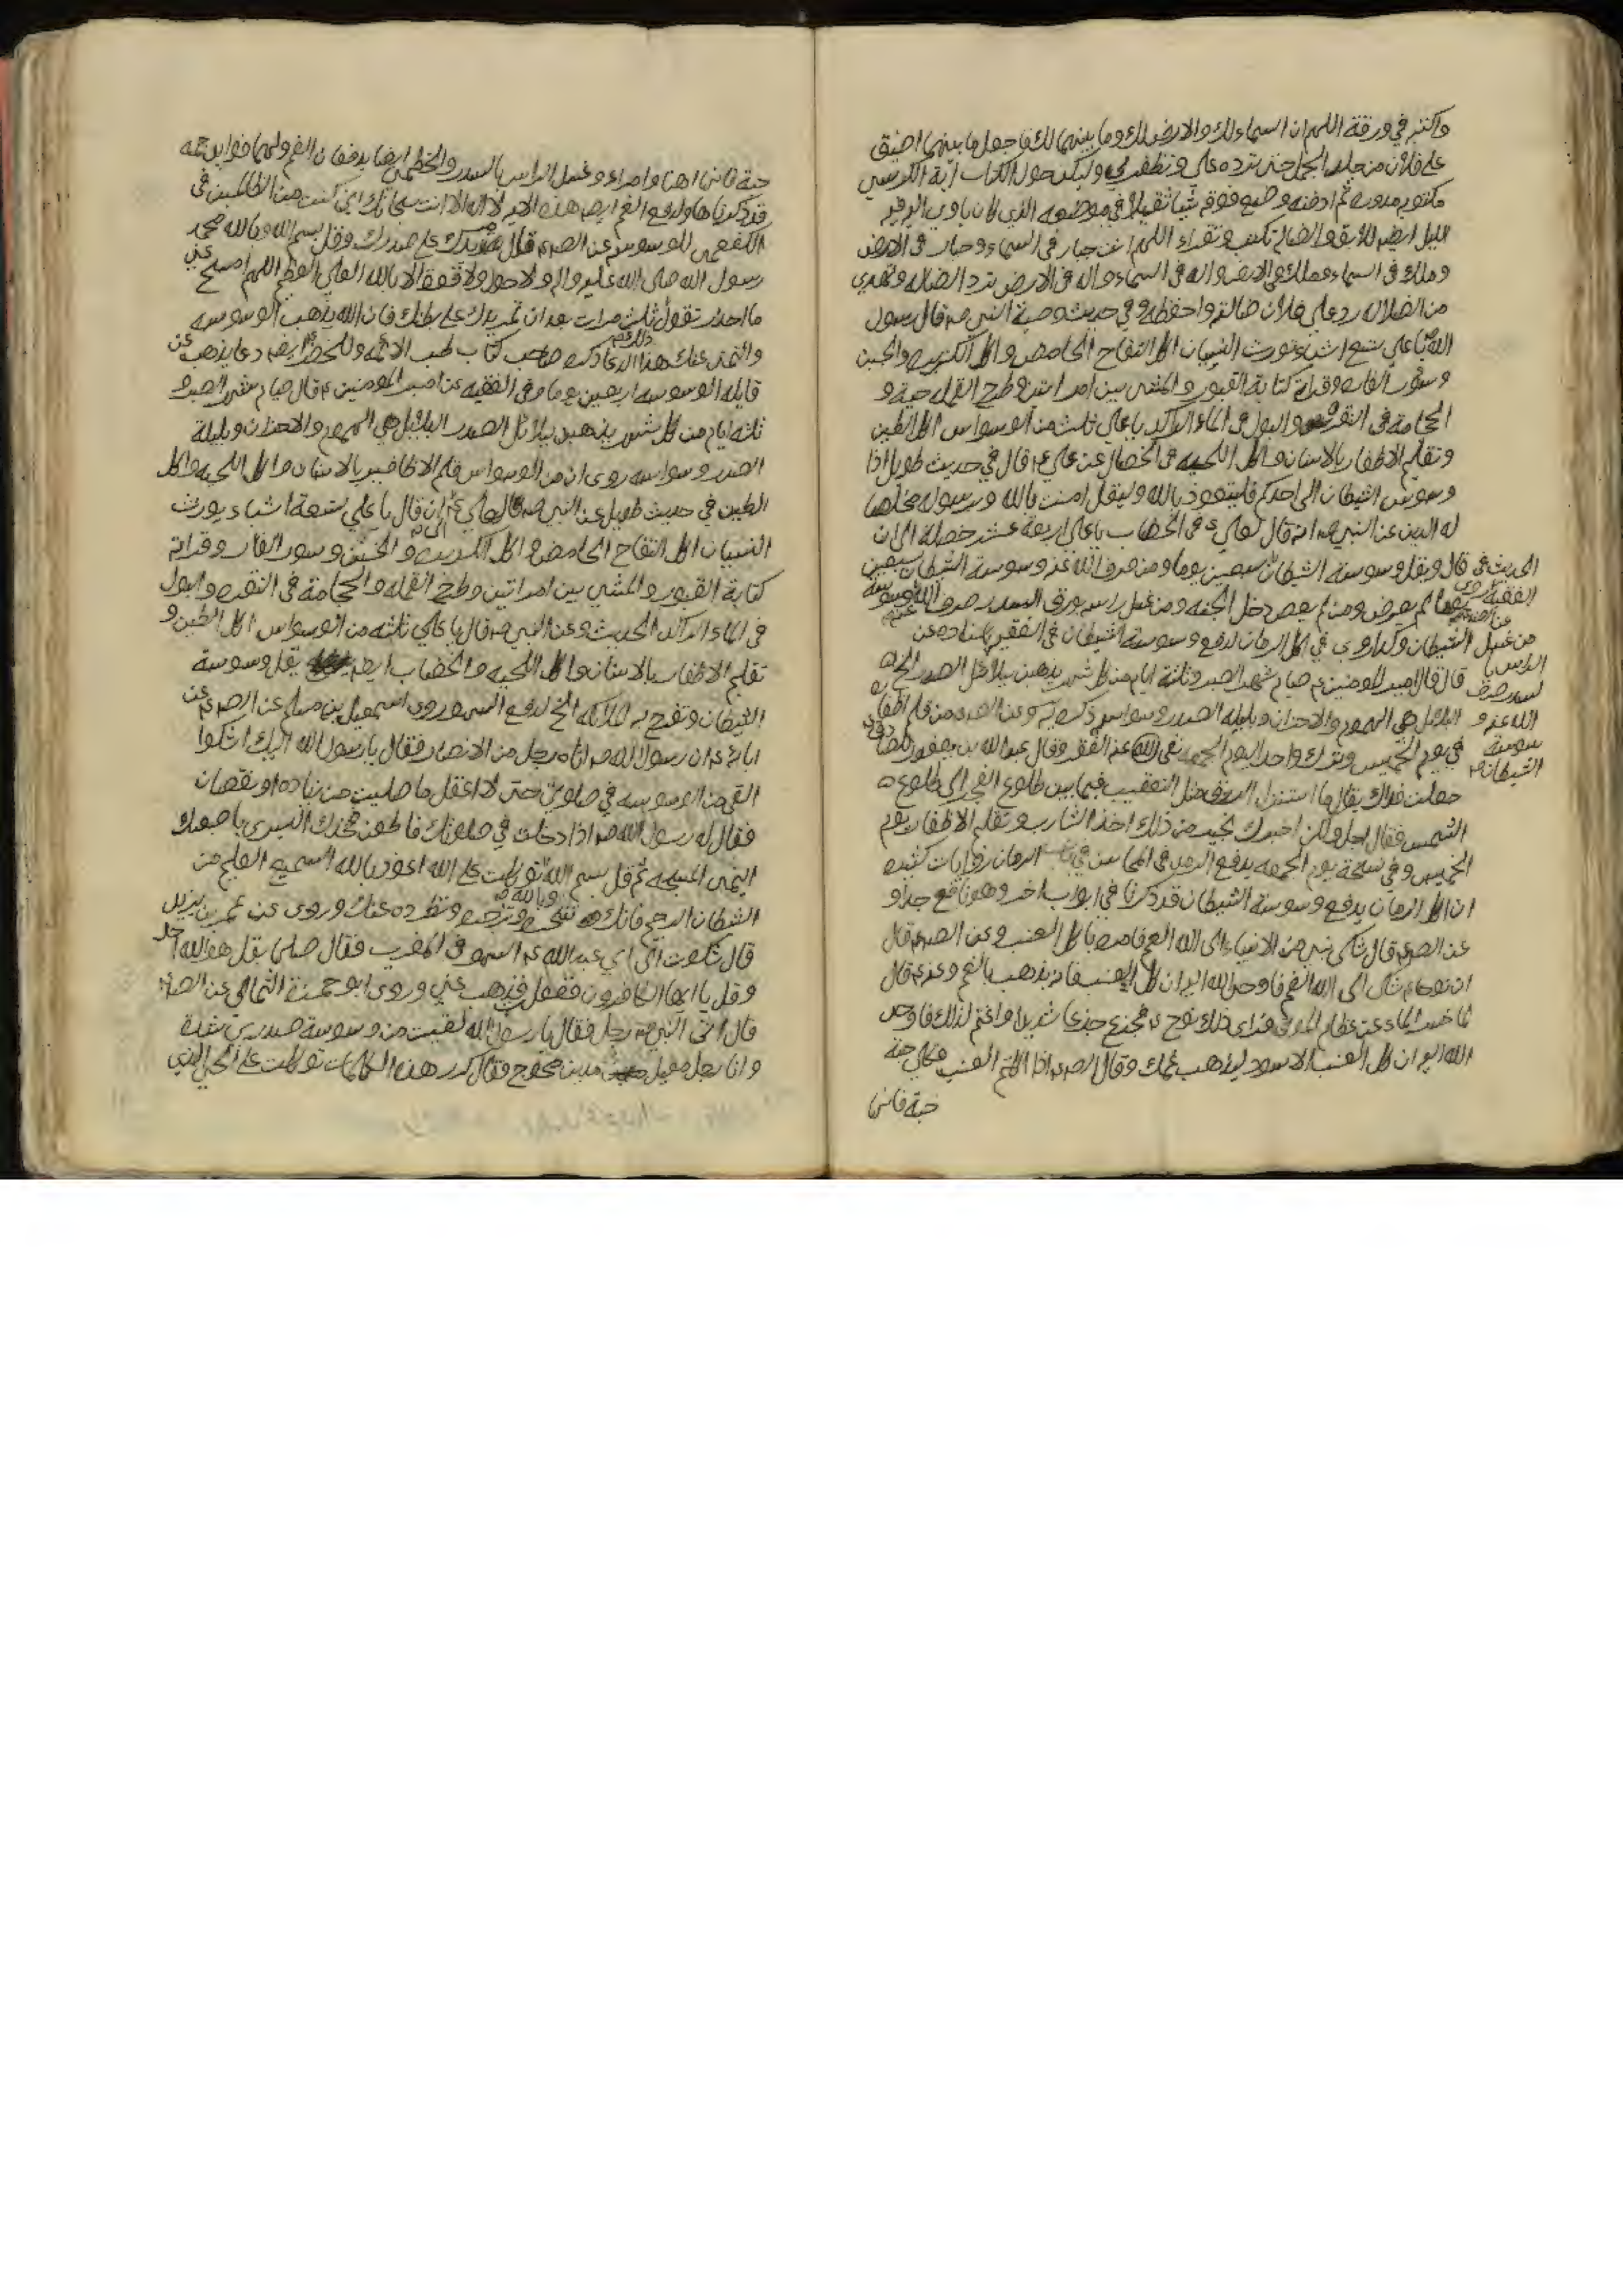 واكتبه في ورقة اللهم ان السماء لك والارض لك وما بينهما لك فاجعل ما بينهما اضيق
على فلان من جلد الجمل حتى ترده علي وتظفرني وليكن حول الكتاب آية الكرسي
مكتوبه مدوره ثم ادفنه وضع فوقه شيئا ثقيلا في موضعه الذي كان ياوي اليه في
الليل ايضا للابق والضالة تكتب وتقراء اللهم انت جبار في السماء وجبار في الارض
وملك في السماء وملك في الارض واله في السماء واله في الارض ترد الضاله وتهدي
من الضلاله رد علي فلان ضالته واحفظه وفي حديث وصية النبي ص قال رسول
الله ص يا علي تسع اشياء تورث النسيان اكل التفاح الحامض واكل الكزبره والجبن
وسؤر الفاره وقراة كتابة القبور والمشي بين امراتين وطرح القمله حية و
الحجامة في النقره والبول في الماء الراكد يا علي ثلث من الوسواس اكل الطين
وتقليم الاظفار بالاسنان واكل اللحيه في الخصال عن علي ع قال في حديث طويل اذا
وسوس الشيطان الى احدكم فليتعوذ بالله وليقل امنت بالله ورسوله مخلصا
له الدين عن النبي ص انه قال لعلي ع في الخضاب يا علي اربعة عشر خصلة الى ان
قال ويقل وسوسة الشيطان سبعين يوما ومن صرف الله عنه وسوسة الشيطان سبعين
يوما لم يعص ومن لم يعص دخل الجنه ومن غسل راسه بورق السدر صرف الله عنه وسوسة
الشيطان وكذا روي في اكل الرمان لدفع وسوسة الشيطان في الفقيه باسناده عن
قال قال امير المومنين ع صيام شهر الصبر وثلثة ايام من كل شهر يذهبن ببلابل الصدر الخ
البلابل هي الهموم والاحزان وبلبله الصدر وسواس ذكره وعن الصادق ع من قلم اظفاره
في يوم الخميس وترك واحد اليوم الجمعه نفى الله عنه الفقر وقال عبد الله بن يعفور للصادق ع
جعلت فداك يقال ما استنزل الرزق مثل التعقيب فيما بين طلوع الفجر الى طلوع
الشمس فقال اجل ولكن اخبرك بخير من ذلك اخذ الشارب وتقليم الاظفار يوم
الخميس وفي نسخة يوم الجمعه في المحاسن في الرمان روايات كثيره
ان اكل الرمان يدفع وسوسة الشيطان قد ذكرنا في ابواب اخر وهو نافع جدا و
عن الصادق ع قال شكى نبي من الانبياء الى الله الغم فامره باكل العنب وعن الصادق ع قال
ان نوحا ع شكى الى الله الغم فاوحى الله اليه ان كل العنب فانه يذهب بالغم وعنه ع قال
لما حسر الماء عن عظام الموتى فراى ذلك نوح ع فجزع جزعا شديدا واغتم لذلك فاوحى
الله اليه ان كل العنب الاسود ليذهب غمك وقال الصادق ع اذا اكلتم العنب فكلوه حبة
حبة فانها
الحديث في
الفقيه روي
عن الصادق
من غسل
الراس
لسدر صرف
الله عنه و
سوسة
الشيطان
حبة فانها اهنا وامراء وغسل الراس بالسدر والخطمي ايضا يدفعان الغم ولهما فوايد جمه
قد ذكرناها ولدفع الغم ايضا هذه الاية لا اله الا انت سبحانك اني كنت من الظالمين في
الكفعمي للوسوسه عن الصادق ع قال مر يدك على صدرك وقل بسم الله وبالله محمد
رسول الله صلى الله عليه واله ولا حول ولا قوة الا بالله العلي العظيم اللهم امسح عني
ما احذر تقول ثلث مرات بعد ان تمر يدك على بطنك فان الله يذهب الوسوسه
والتمني عنك هذا الدعاء ذكره صاحب كتاب طب الائمه وللخطر ايضا دعا يذهب عن
قايله الوسوسه اربعين يوما وفي الفقيه عن امير المومنين ع قال صيام شهر الصبر و
ثلثه ايام من كل شهر يذهبن ببلابل الصدر البلابل هي الهموم والاحزان وبلبلة
الصدر وسواسه روى ان من الوسواس قلم الاظافير بالاسنان واكل اللحيه واكل
الطين في حديث طويل عن النبي ص قال لعلي ع ان قال يا علي تسعة اشياء يورث
النسيان اكل التفاح الحامض واكل الكزبره والجبن وسور الفار وقراة
كتابة القبور والمشي بين امراتين وطرح القمله والحجامة في النقره والبول
في الماء الراكد الحديث وعن النبي ص قال يا علي ثلثه من الوسواس اكل الطين و
تقليم الاظفار بالاسنان واكل اللحيه والخضاب ايضا يقل وسوسة
الشيطان وتفرح به الملائكه الخ لدفع السهو روى اسمعيل بن مسلم عن الصادق ع عن
ابائه ع ان رسول الله ص اتاه رجل من الانصار فقال يا رسول الله اليك اشكوا
القى من الوسوسه في صلوتي حتى لا اعقل ما صليت من زياده او نقصان
فقال له رسول الله ص اذا دخلت في صلوتك فاطعن فخذك اليسرى باصبعك
اليمنى المسبحه ثم قل بسم الله وبالله توكلت على الله اعوذ بالله السميع العليم من
الشيطان الرجيم فانك تنحيه وتزجره وتطرده عنك وروى عن عمر بن يزيد
قال شكوت الى ابي عبد الله ع السهو في المغرب فقال صلها بقل هو الله احد
وقل يا ايها الكافرون ففعلت فذهب عني وروى ابو حمزة الثمالي عن الصادق ع
قال اتى النبي ص رجل فقال يا رسول الله لقيت من وسوسة صدري شدة
وانا رجل معيل مدين محوج فقال كرر هذه الكلمات توكلت على الحي الذي